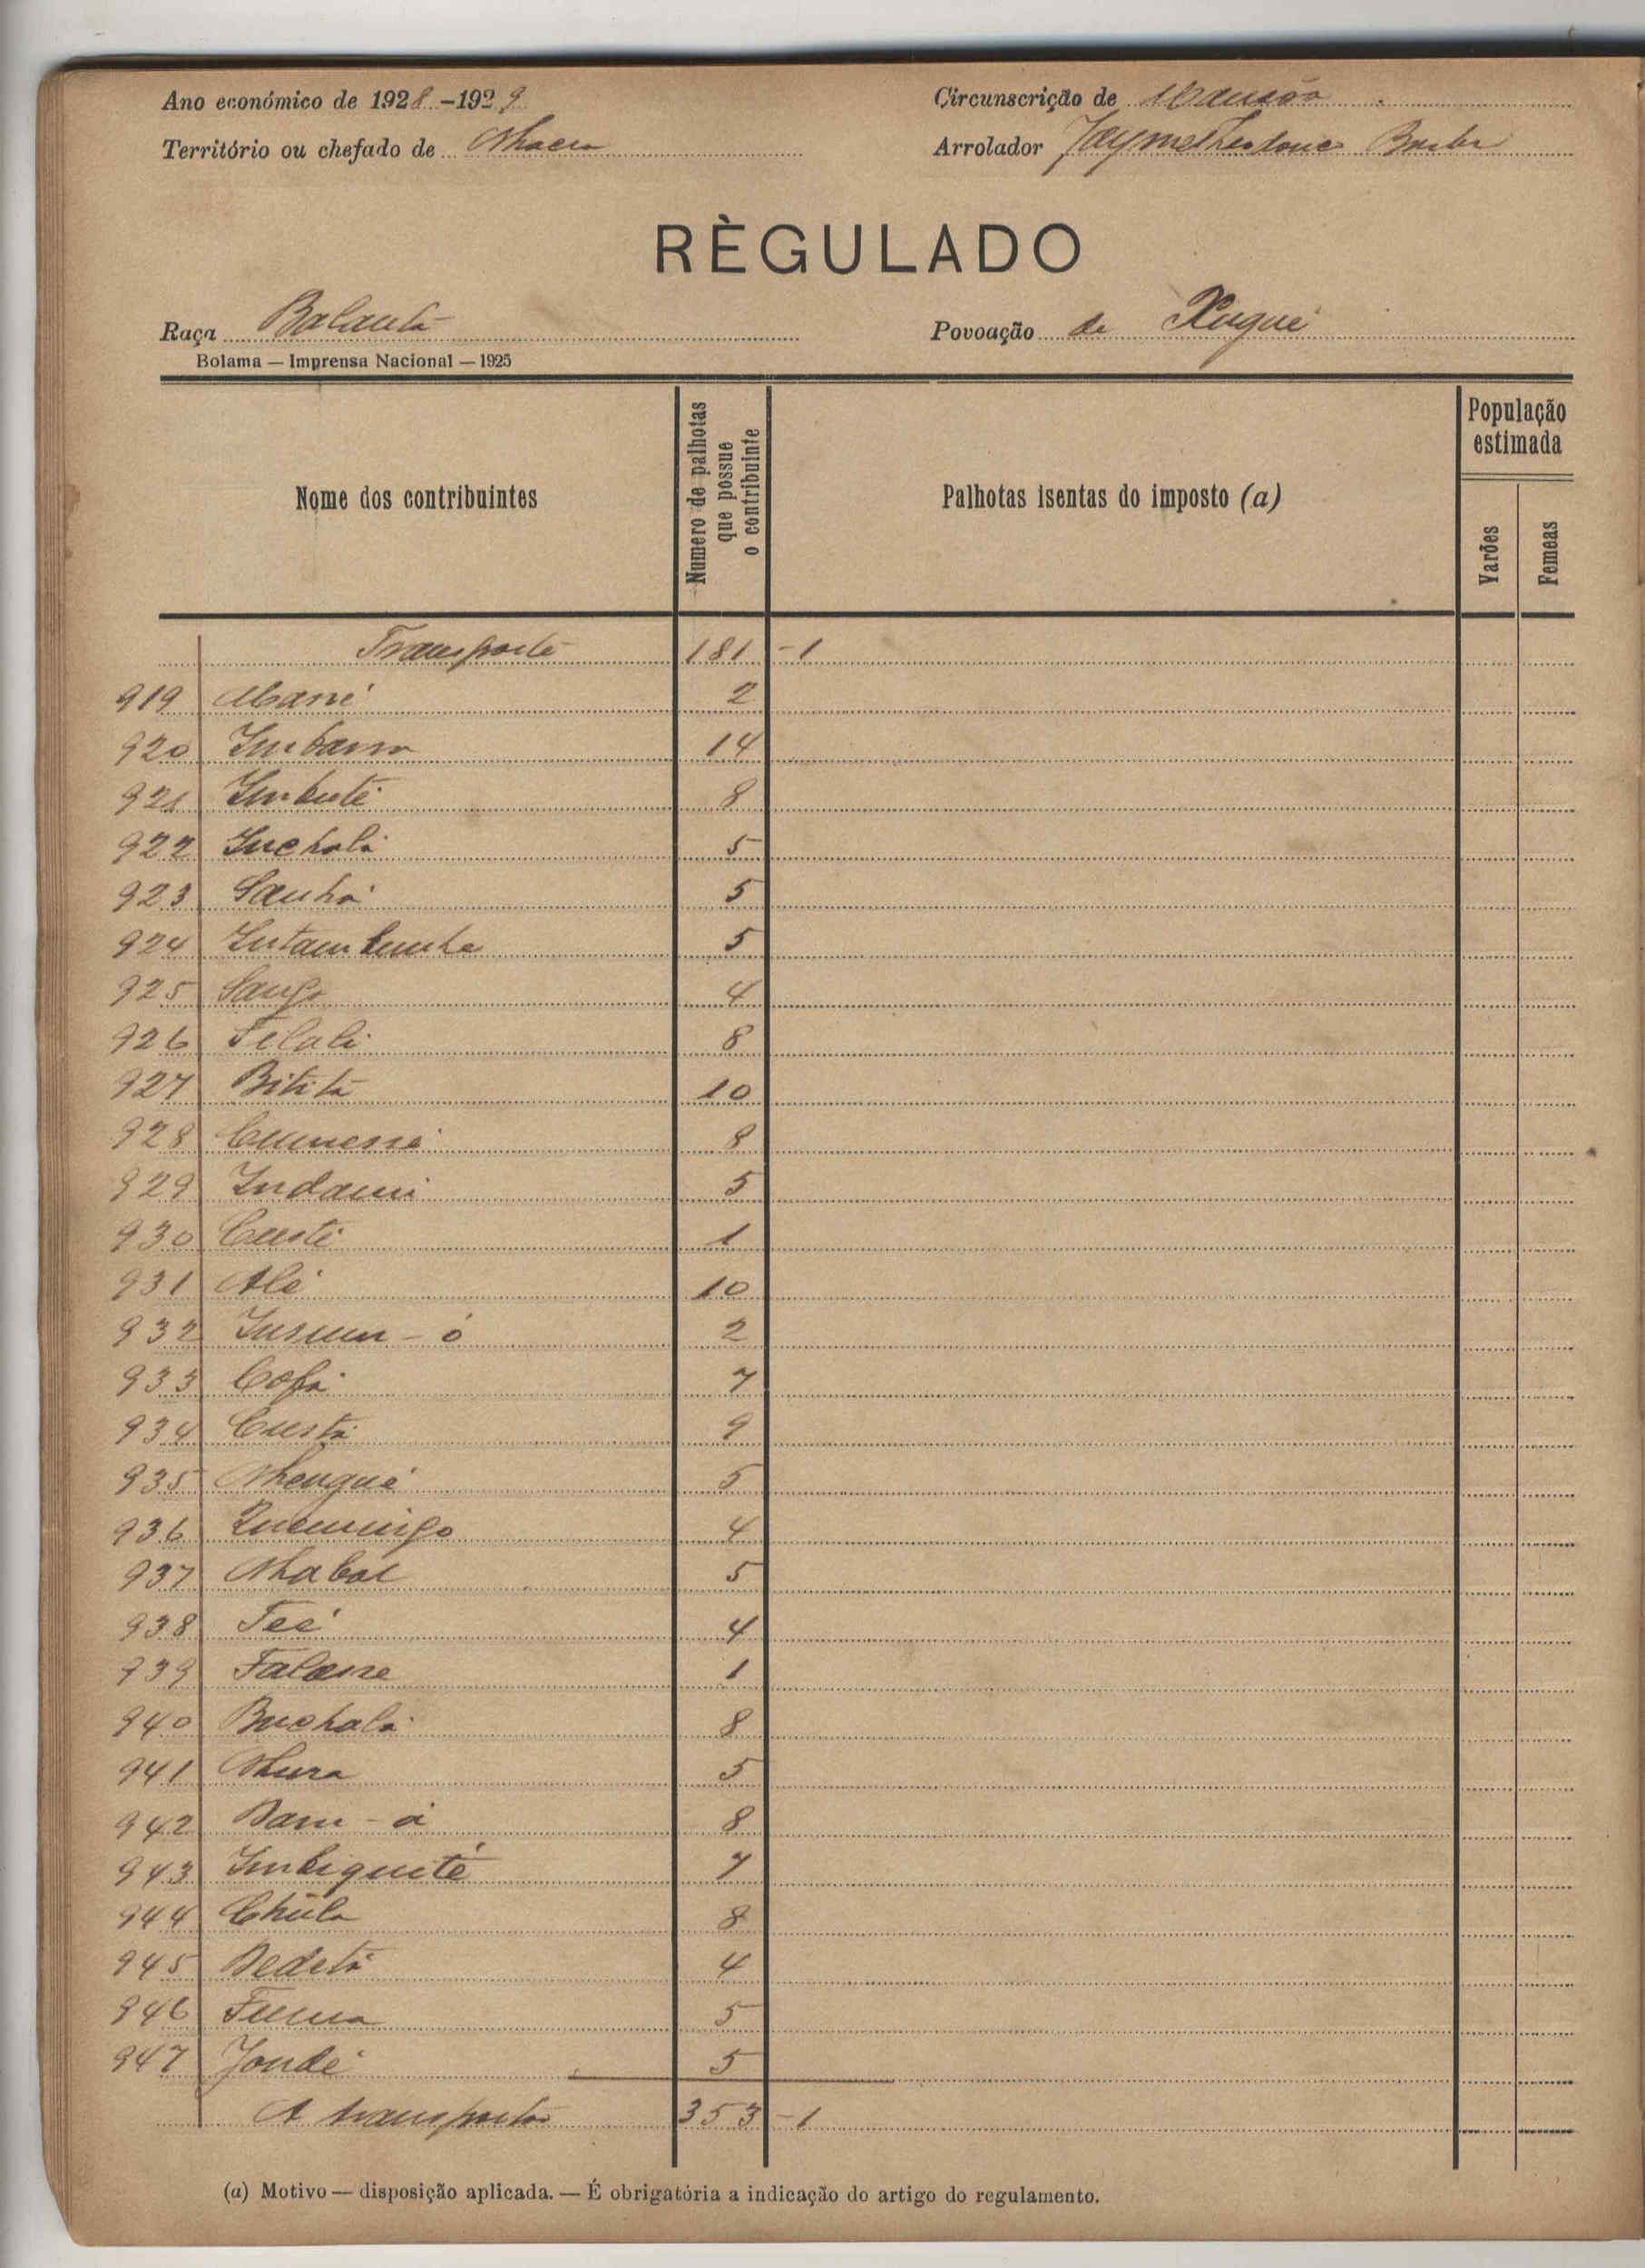 Ano económico de 1928-1929
Circunscrição de Mansôa
Território ou chefado de
Arrolador Jayme Barbr
RÈGULADO
Raça Balanta
Povoação de Xugué
Bolama — Imprensa Nacional — 1925
Nome dos contribuintes
Numero de palhotas que possue o contribuinte
Palhotas isentas do imposto (a)
População estimada
Varões
Femeas
Transporte 181 - 1
919 Mané 2
920 Imbana 14
921 Imbuté 8
922 Inchalá 5
923 Sanhá 5
924 5
925 Sanfo 4
926 Filali 8
927 Bitità 10
928 8
929 Indami 5
930 Custé 1
931 Alé 10
932 Insum - ó 2
933 Cofá 7
934 Custà 9
935 Nhengué 5
936 4
937 Nhabal 5
938 Teé 4
939 1
940 Buchalá 8
941 Nhura 5
942 Dam - á 8
943 Imbiquité 7
944 Chula 8
945 Dedetá 4
946 Fuma 5
947 Jondé 5
A transportar 353 - 1
(a) Motivo — disposição aplicada. — É obrigatória a indicação do artigo do regulamento.